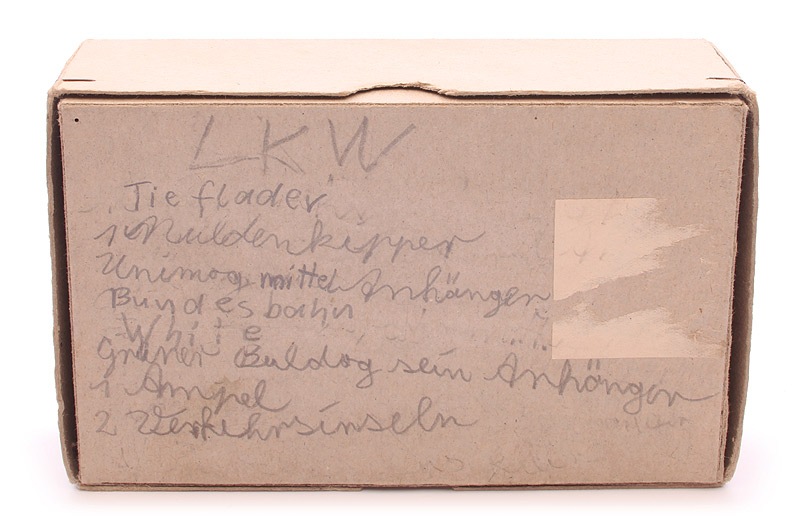 LKW
Tieflader
1 Muldenkipper
Unimog mittel Anhängen
Bundesbahn
White
Grüner Buldog sein Anhängen
1 Ampel
2 Verkehrsinseln